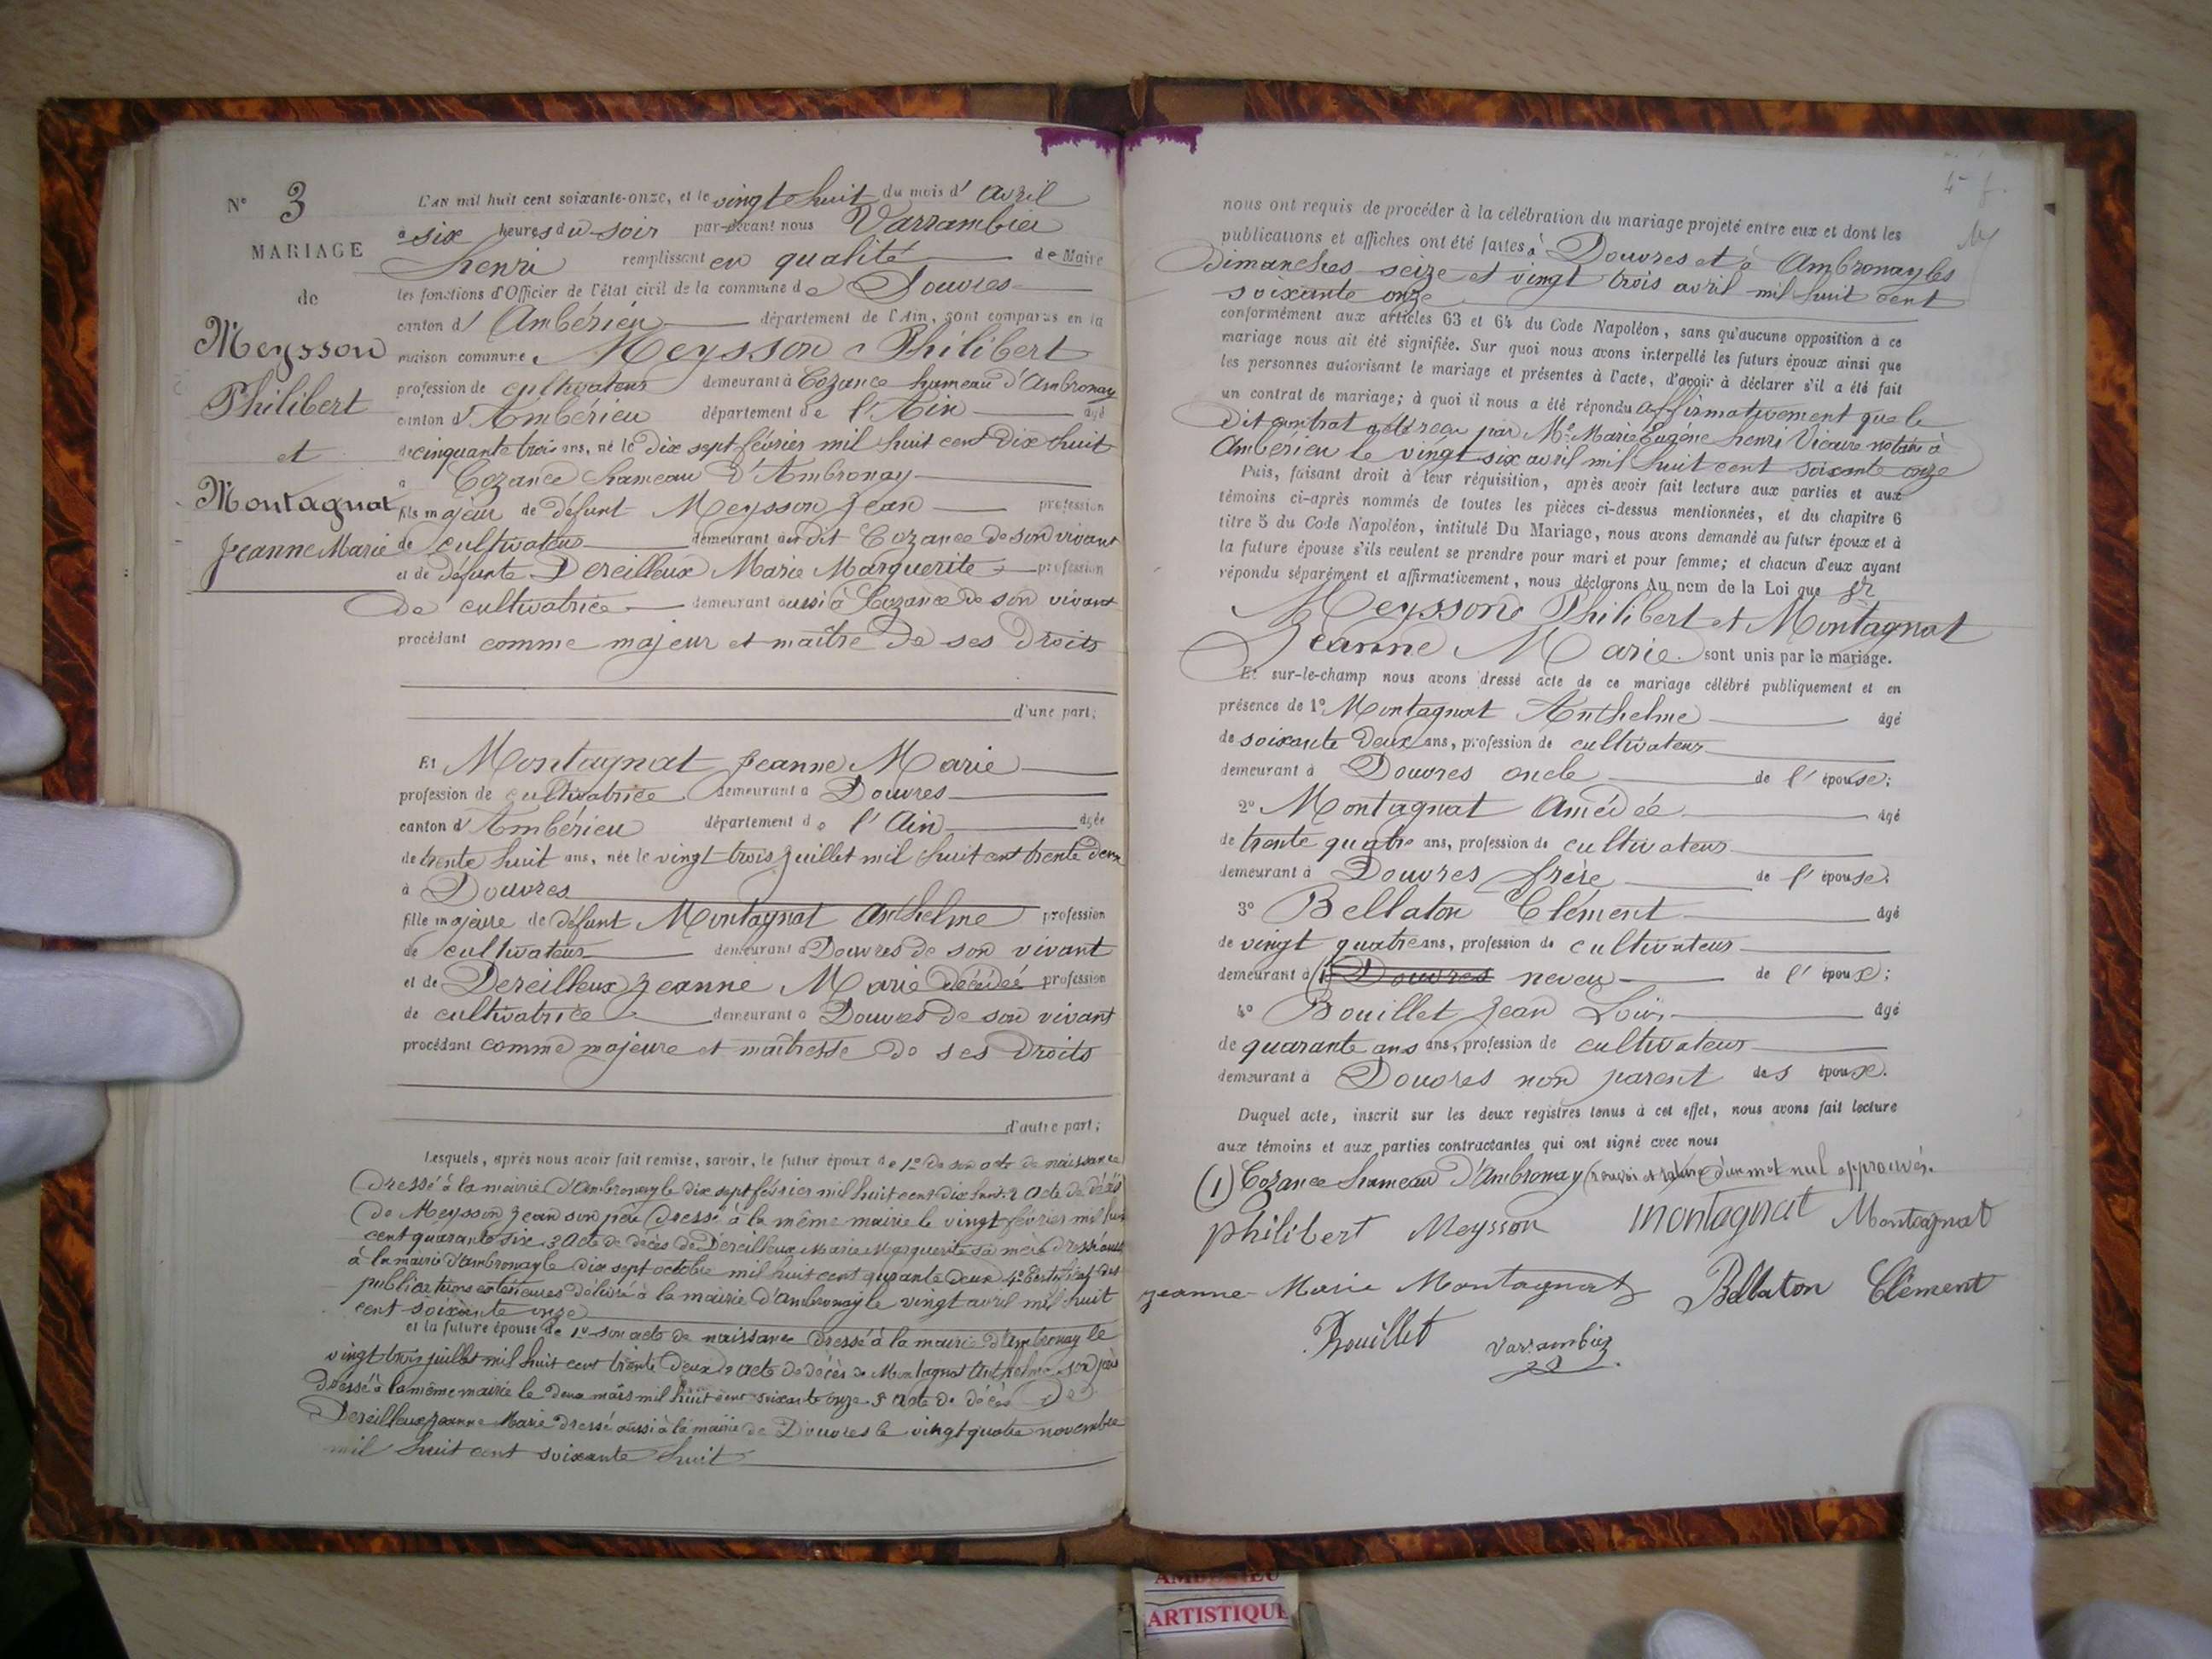 N° 3
MARIAGE
de
Meysson
Philibert
et
Montagnat
Jeanne Marie
L'an mil huit cent soixante-onze, et le vingt huit du mois d'avril
à six heures du soir par-devant nous Varrambier
henri remplissant en qualité de Maire
les fonctions d'Officier de l'état civil de la commune de Douvres
canton d'Ambérieu département de l'Ain, sont comparus en la
maison commune, Meysson Philibert
profession de cultivateur demeurant à Cozance hameau d'Ambronay
canton d'Ambérieu département de l'Ain âgé
de cinquante trois ans, né le dix sept février mil huit cent dix huit
à Cozance hameau d'Ambronay
fils majeur de défunt Meysson Jean profession
de cultivateur demeurant au dit Cozance de son vivant
et de défunte Dereilleux Marie Marguerite profession
de cultivatrice demeurant aussi à Cozance de son vivant
procédant comme majeur et maître de ses droits
d'une part;
Et Montagnat Jeanne Marie
profession de cultivatrice demeurant à Douvres
canton d'Ambérieu département de l'Ain âgée
de trente huit ans, née le vingt trois juillet mil huit cent trente deux
à Douvres
fille majeure de défunt Montagnat Anthelme profession
de cultivateur demeurant à Douvres de son vivant
et de Dereilleux Jeanne Marie décédée profession
de cultivatrice demeurant à Douvres de son vivant
procédant comme majeure et maîtresse de ses droits
d'autre part;
Lesquels, après nous avoir fait remise, savoir, le futur époux de 1° de son acte de naissance
dressé à la mairie d'Ambronay le dix sept février mil huit cent dix huit. 2 acte de décès
de Meysson Jean son père dressé à la même mairie le vingt février mil huit
cent quarante six. 3 Acte de décès de Dereilleux Marie Marguerite sa mère dressé aussi
à la mairie d'Ambronay le dix sept octobre mil huit cent quarante deux 4° Certificat des
publications extérieures délivré à la mairie d'Ambronay le vingt avril mil huit
cent soixante onze
et la future épouse de 1° son acte de naissance dressé à la mairie d'Ambronay le
vingt trois juillet mil huit cent trente deux 2 acte de décès de Montagnat Anthelme son père
dressé à la même mairie le deux mars mil huit cent soixante onze 3 acte de décès de
Dereilleux Jeanne Marie dressé aussi à la mairie de Douvres le vingt quatre novembre
mil huit cent soixante huit
nous ont requis de procéder à la célébration du mariage projeté entre eux et dont les
publications et affiches ont été faites à Douvres et à Ambronay les
dimanches seize et vingt trois avril mil huit cent
soixante onze
conformément aux articles 63 et 64 du Code Napoléon, sans qu'aucune opposition à ce
mariage nous ait été signifiée. Sur quoi nous avons interpellé les futurs époux ainsi que
les personnes autorisant le mariage et présentes à l'acte, d'avoir à déclarer s'il a été fait
un contrat de mariage; à quoi il nous a été répondu affirmativement que le
dit contrat a été reçu par Me Marie Eugène henri Vicaire notaire à
Ambérieu le vingt six avril mil huit cent soixante onze
Puis, faisant droit à leur réquisition, après avoir fait lecture aux parties et aux
témoins ci-après nommés de toutes les pièces ci-dessus mentionnées, et du chapitre 6
titre 5 du Code Napoléon, intitulé Du Mariage, nous avons demandé au futur époux et à
la future épouse s'ils veulent se prendre pour mari et pour femme; et chacun d'eux ayant
répondu séparément et affirmativement, nous déclarons Au nom de la Loi que
Meysson Philibert et Montagnat
Jeanne Marie sont unis par le mariage.
Et sur-le-champ nous avons dressé acte de ce mariage célébré publiquement et en
présence de 1° Montagnat Anthelme âgé
de soixante deux ans, profession de cultivateur
demeurant à Douvres oncle de l'épouse;
2° Montagnat Amédée âgé
de trente quatre ans, profession de cultivateur
demeurant à Douvres frère de l'épouse.
3° Bellaton Clément âgé
de vingt quatre ans, profession de cultivateur
demeurant à (1) Douvres neveu de l'époux;
4° Bouillet Jean Loüis âgé
de quarante ans ans, profession de cultivateur
demeurant à Douvres non parent des époux.
Duquel acte, inscrit sur les deux registres tenus à cet effet, nous avons fait lecture
aux témoins et aux parties contractantes qui ont signé avec nous
(1) Cozance hameau d'Ambronay (renvoi et rature d'un mot nul approuvés.
philibert Meysson montagnat Montagnat
jeanne Marie Montagnat Bellaton Clément
Bouillet Varrambier
AMBERIEU
ARTISTIQUE